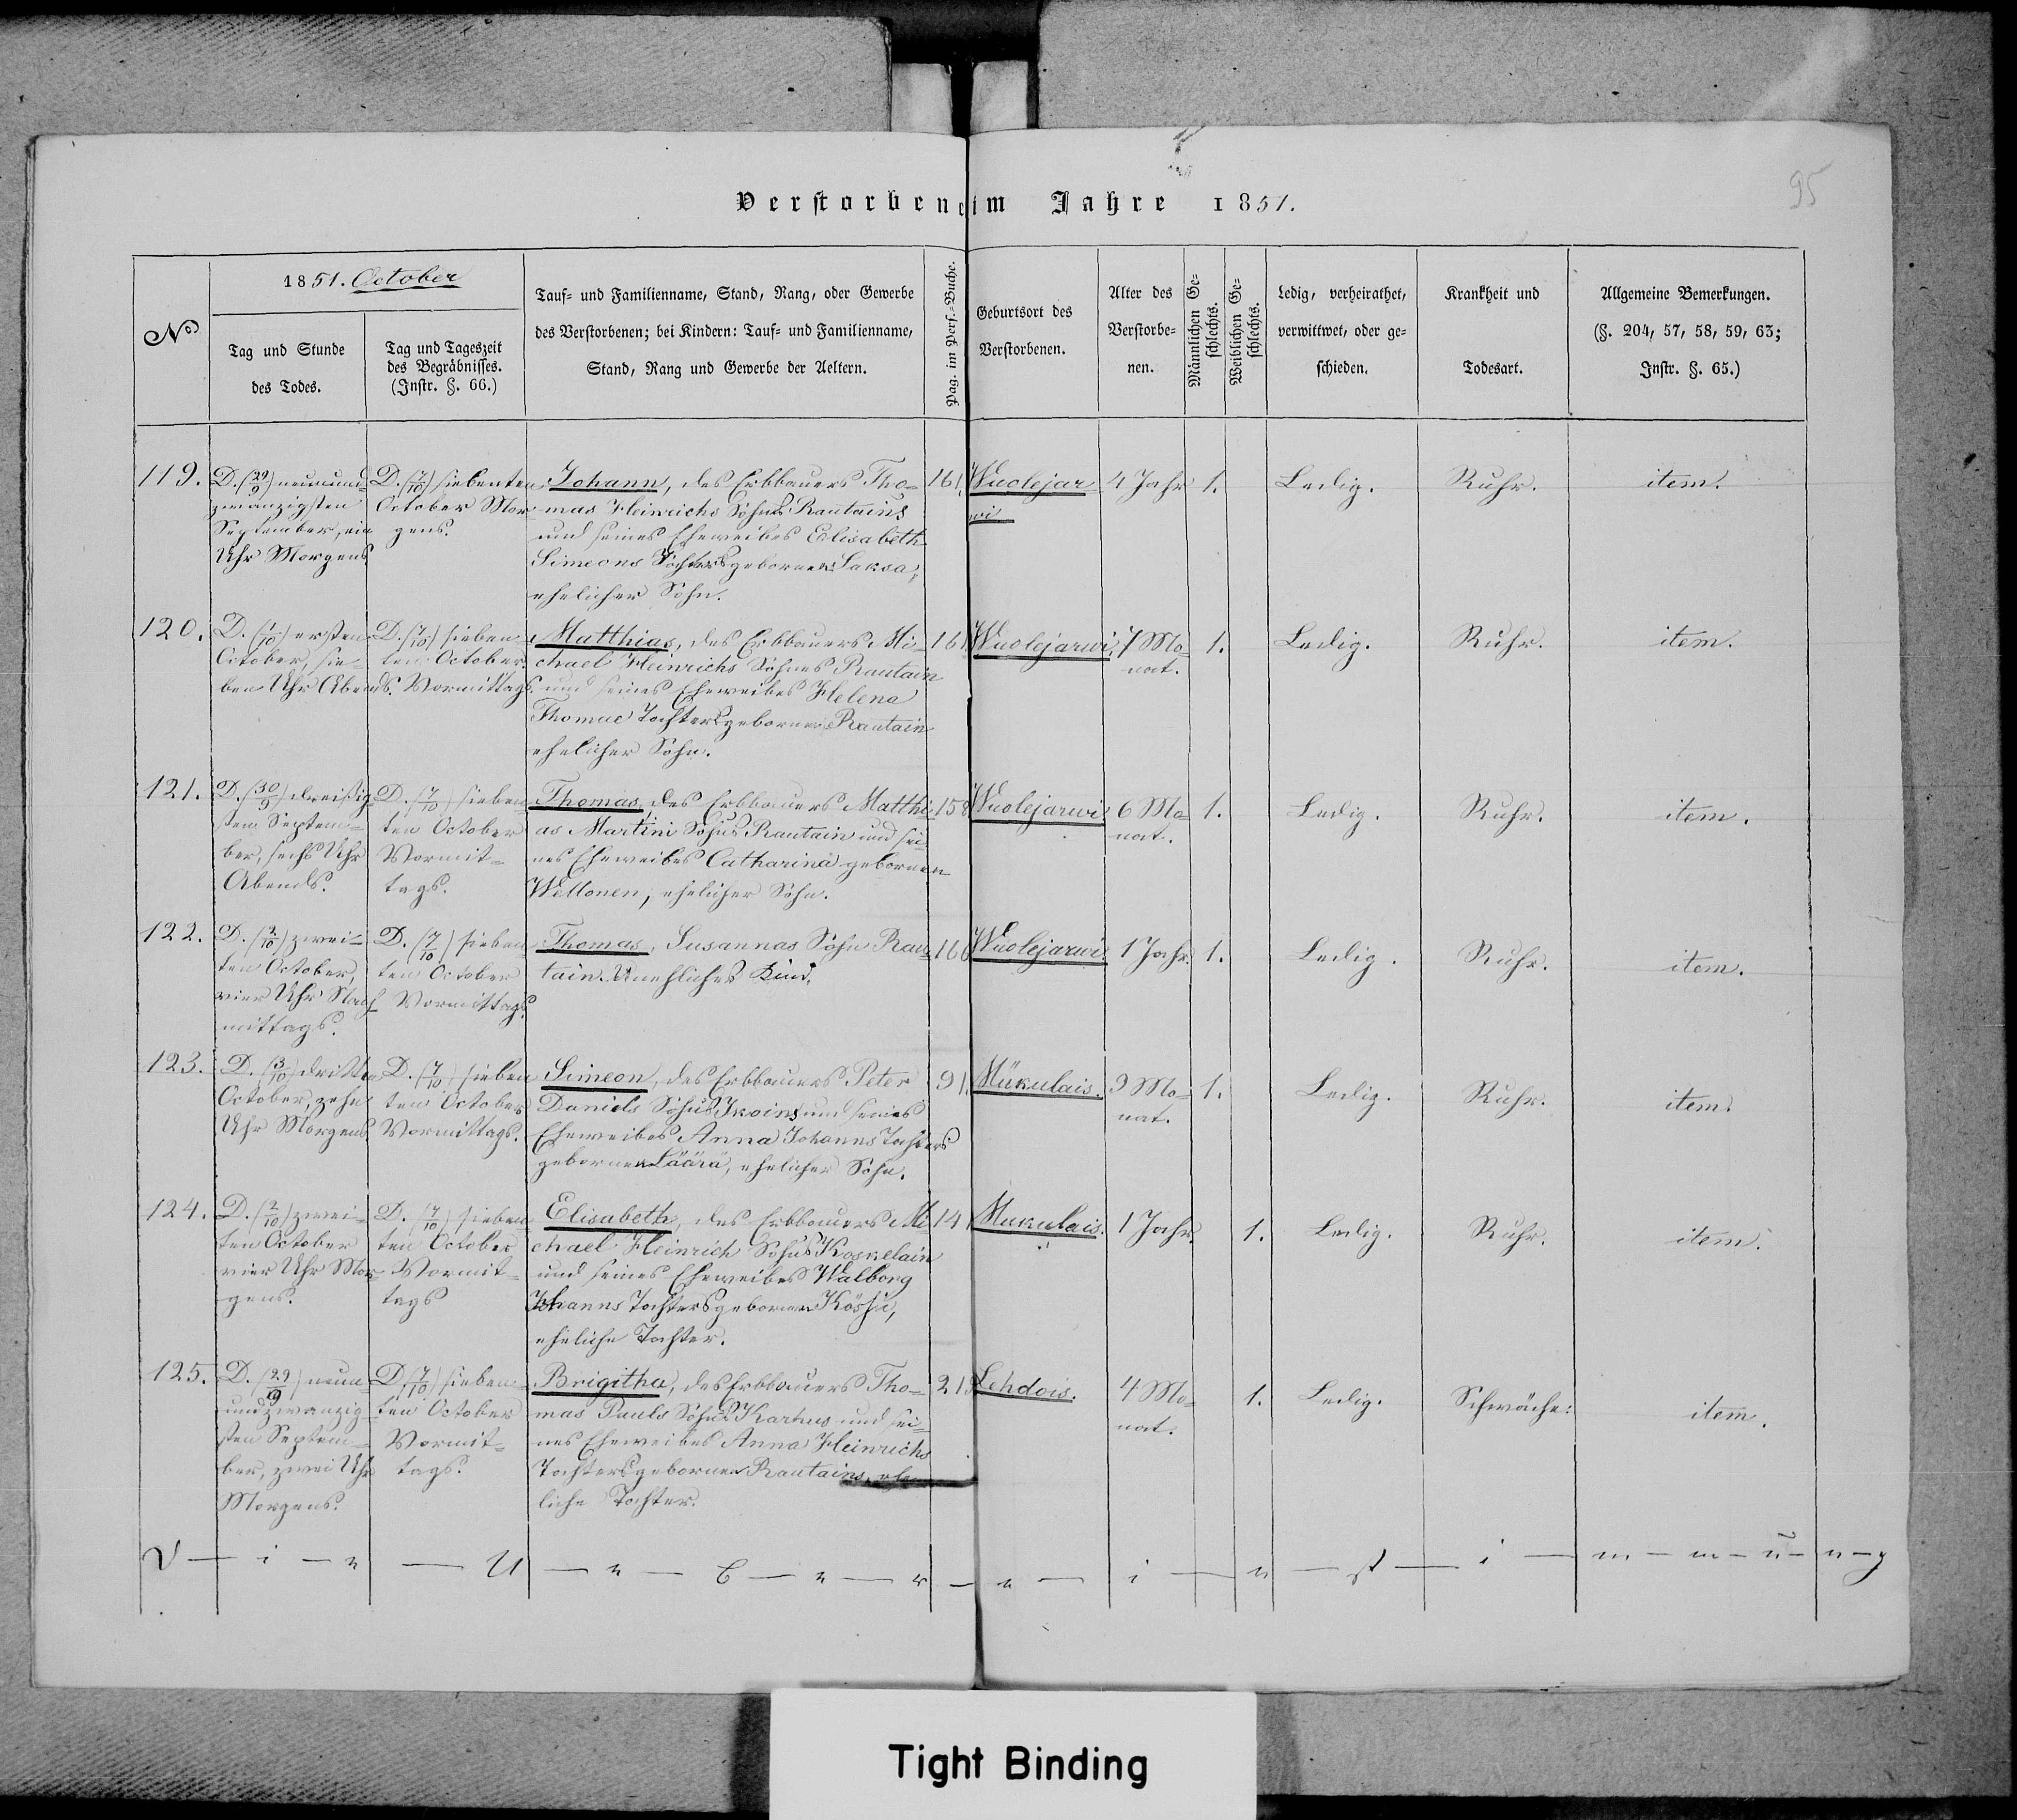 95
Verstorben im Jahre 1851.
No
1851. October
Tag und Stunde
des Todes.
Tag und Tageszeit
des Begräbnisses.
(Instr. §. 66.)
Tauf- und Familienname, Stand, Rang, oder Gewerbe
des Verstorbenen; bei Kindern: Tauf- und Familienname,
Stand, Rang und Gewerbe der Aeltern.
Pag. im Pers.-Buche.
Geburtsort des
Verstorbenen.
Alter des
Verstorbe-
nen.
Männlichen Ge-
schlechts.
Weiblichen Ge-
schlechts.
Ledig, verheirathet,
verwittwet, oder ge-
schieden.
Krankheit und
Todesart.
Allgemeine Bemerkungen.
(§. 204, 57, 58, 59, 63;
Instr. §. 65.)
119.
D. (29/9) neunund-
zwanzigsten
September, ein
Uhr Morgens
D. (7/10) siebenten
October Mor-
gens.
Johann, des Erbbauers Tho-
mas Heinrichs Sohns Rautains
und seines Eheweibes Elisabeth
Simeons Tochters geborner Laksa,
ehelicher Sohn.
161.
Wuolejar-
wi
4 Jahr
1.
Ledig.
Ruhr.
item.
120.
D. (1/10) ersten
October, sie-
ben Uhr Abends.
D. (7/10) sieben-
ten October
Vormittags.
Matthias, des Erbbauers Mi-
chael Heinrichs Sohnes Rautain
und seines Eheweibes Helena
Thomae Tochters geborner Rautain
ehelicher Sohn.
161
Wuolejarwi
7 Mo-
nat.
1.
Ledig.
Ruhr.
item.
121.
D. (30/9) dreißig-
sten Septem-
ber, sechs Uhr
Abends.
D. (7/10) sieben-
ten October
Vormit-
tags.
Thomas, des Erbbauers Matthi-
as Martini Sohns Rautain und sei-
nes Eheweibes Catharina gebornen
Wellonen, ehelicher Sohn.
158
Wuolejarwi
6 Mo-
nat.
1.
Ledig.
Ruhr.
item.
122.
D. (2/10) zwei-
ten October,
vier Uhr Nach-
mittags.
D. (7/10) sieben-
ten October
Vormittags.
Thomas, Susannas Sohn Rau-
tain. Unehliches Kind.
160
Wuolejarwi
1 Jahr.
1.
Ledig.
Ruhr.
item.
123.
D. (3/10) dritten
October, zehn
Uhr Morgens
D. (7/10) sieben-
ten October
Vormittags.
Simeon, des Erbbauers Peter
Daniels Sohns Ikoins und seines
Eheweibes Anna Johanns Tochters
geborner Läärä, ehelicher Sohn.
91.
Mükulais.
9 Mo-
nat.
1.
Ledig.
Ruhr.
item.
124.
D. (2/10) zwei-
ten October
vier Uhr Mor-
gens.
D. (7/10) sieben-
ten October
Vormit-
tags
Elisabeth, des Erbbauers Mi-
chael Heinrich Sohns Koskelain
und seines Eheweibes Walborg
Johanns Tochters geborner
eheliche Tochter.
141
Mükulais.
1 Jahr.
1.
Ledig.
Ruhr.
item.
125.
D. (29/9) neun-
undzwanzig-
sten Septem-
ber, zwei Uhr
Morgens.
D. (7/10) sieben-
ten October
Vormit-
tags.
Brigitha, des Erbbauers Tho-
mas Pauls Sohns Karhus und sei-
nes Eheweibes Anna Heinrichs
Tochters geborner Rautains, ehe-
liche Tochter.
21
Lehdois.
4 Mo-
nat.
1.
Ledig.
Schwäche.
item.
D — i — e — U — e — b — e — r — e — i — n — st — i — m — m — u — n — g
Tight Binding